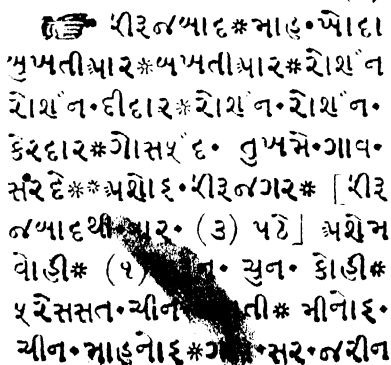 પીરૂજબાદ*માહ•ખોદા
બુખતીઆર*બખતીઆર*રોશંન
રોશંન•દીદાર*રોશંન•રોશંન•
કેરદાર*ગોસપંદ• તુખમે•ગાવ•
સંરદે**અશોઇ•પીરૂજગર* [પીરૂ
જબાદથી (૩) પઢે] અશેમ
વોહી* (૧) ચુન• કોહી*
પરૈસસત• મીનોઇ•
ચીન•માહનોઇ* •સર•જરીન